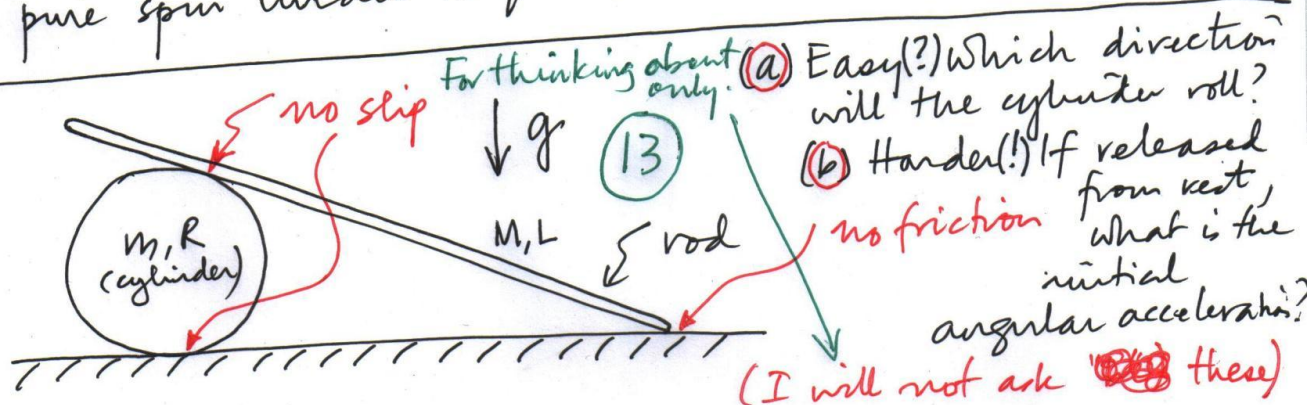 pure spin
For thinking about
only.
(a) Easy(?) Which direction
will the cylinder roll?
(b) Harder(!) If released
from rest,
what is the
initial
angular acceleration?
(I will not ask these)
no slip
g
13
m, R
(cylinder)
M, L
rod
no friction